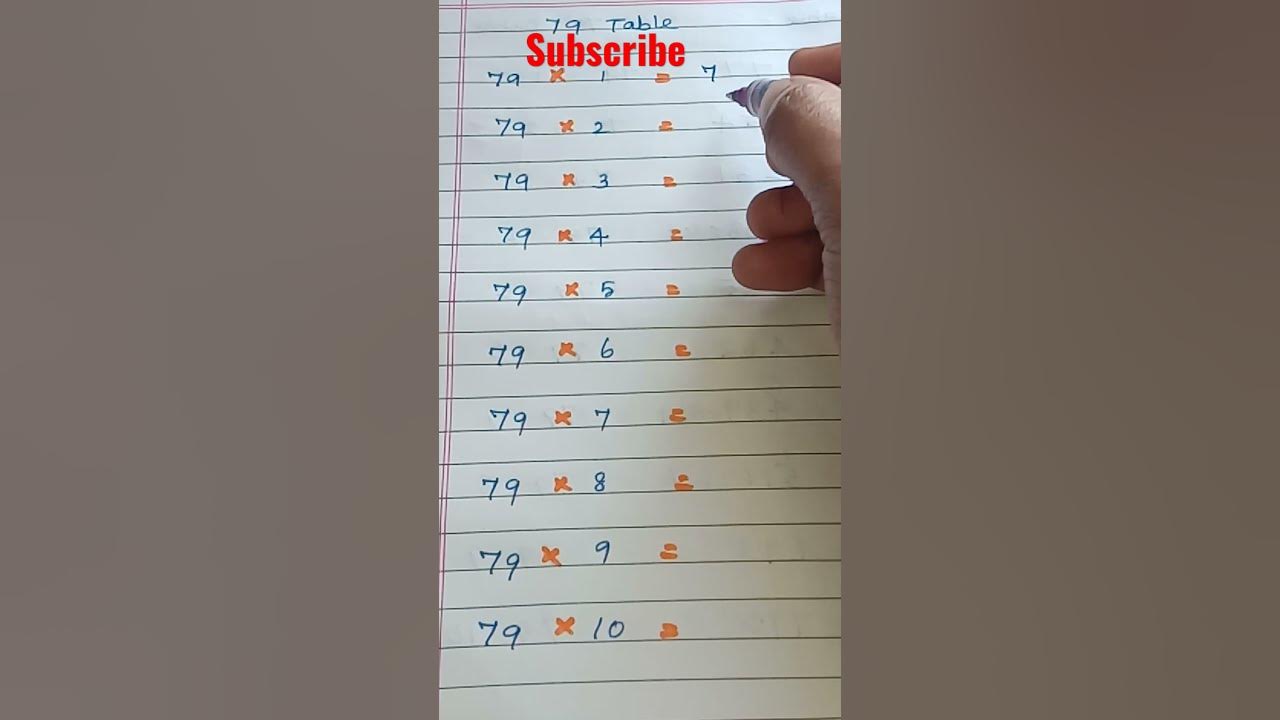 79 Table
Subscribe
79 × 1 = 7
79 × 2 =
79 × 3 =
79 × 4 =
79 × 5 =
79 × 6 =
79 × 7 =
79 × 8 =
79 × 9 =
79 × 10 =